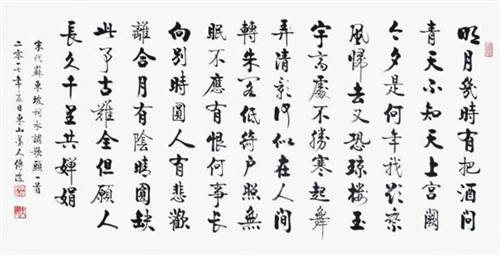 明月幾時有把酒問
青天不知天上宮闕
今夕是何年我欲乘
風歸去又恐瓊樓玉
宇高處不勝寒起舞
弄清影何似在人間
轉朱閣低綺戶照無
眠不應有恨何事長
向別時圓人有悲歡
離合月有陰晴圓缺
此事古難全但願人
長久千里共嬋娟
宋代蘇東坡詞水調歌頭一首
二零一七年夏日東山